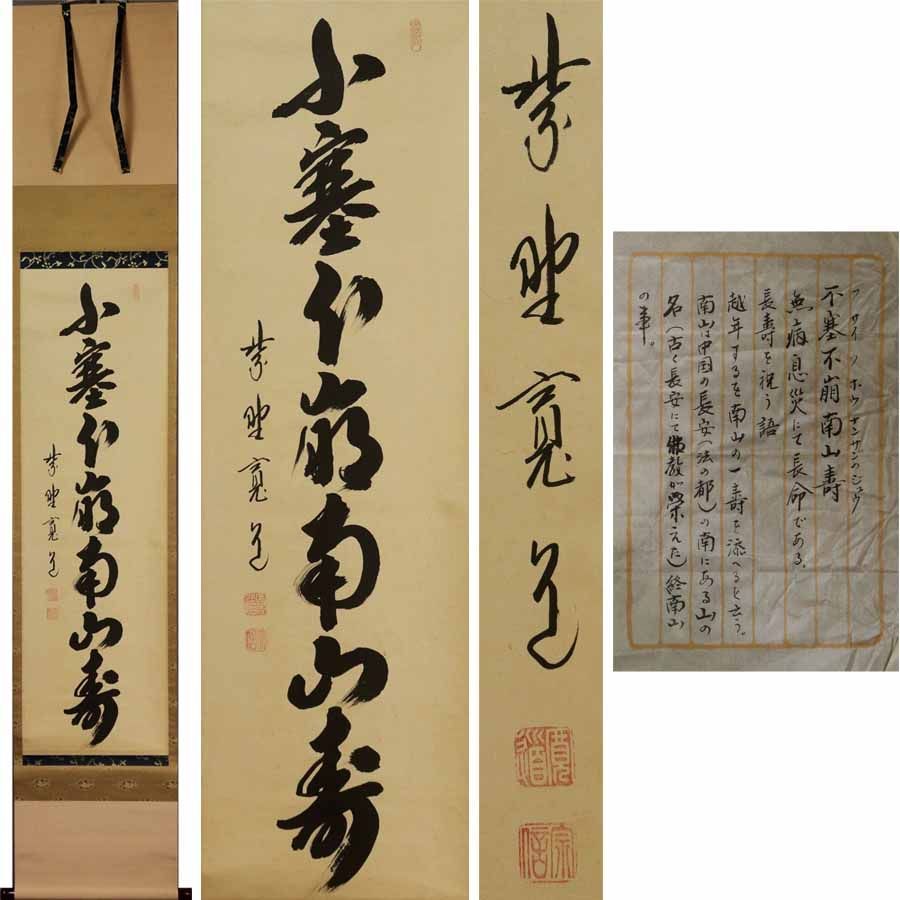 不塞不崩南山寿
紫野寛道
不塞不崩南山寿
紫野寛道
紫野寛道
寛道
宗信
フサイフホウナンザンのジュウ
不塞不崩南山壽
無病息災にて長命である。
長壽を祝う語
越年するを南山の一壽を添へると云う。
南山は中国の長安(法の都)の南にある山の
名(古く長安にて佛教が栄えた)終南山
の事。